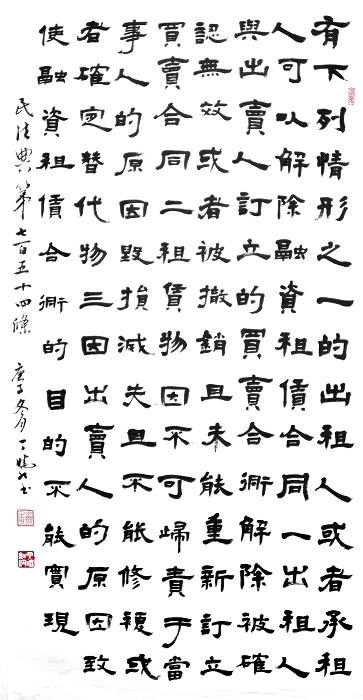 有下列情形之一的出租人或者承租
人可以解除融資租賃合同一出租人
與出賣人訂立的買賣合衕解除被確
認無效或者被撤銷且未能重新訂立
買賣合同二租賃物因不可歸責于當
事人的原因毀損滅失且不能修複或
者確定替代物三因出賣人的原因致
使融資租賃合衕的目的不能實現
民法典第七百五十四條 庚子冬月丁